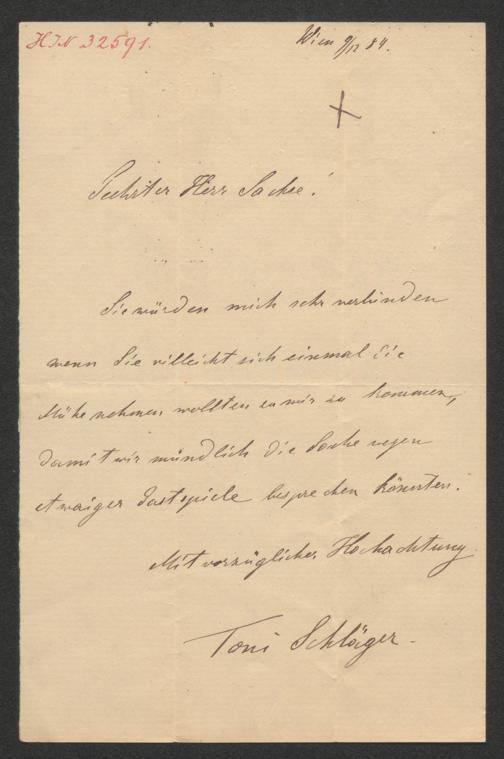 HIN 32591.
Wien 9/12 84.
Geehrter Herr Sachse!
Sie würden mich sehr verbinden
wenn Sie villeicht sich einmal die
Mühe nehmen wollten zu mir zu kommen,
damit wir mündlich die Sache wegen
etwaiger Gastspiele besprechen könnten.
Mit vorzüglicher Hochachtung
Toni Schläger.